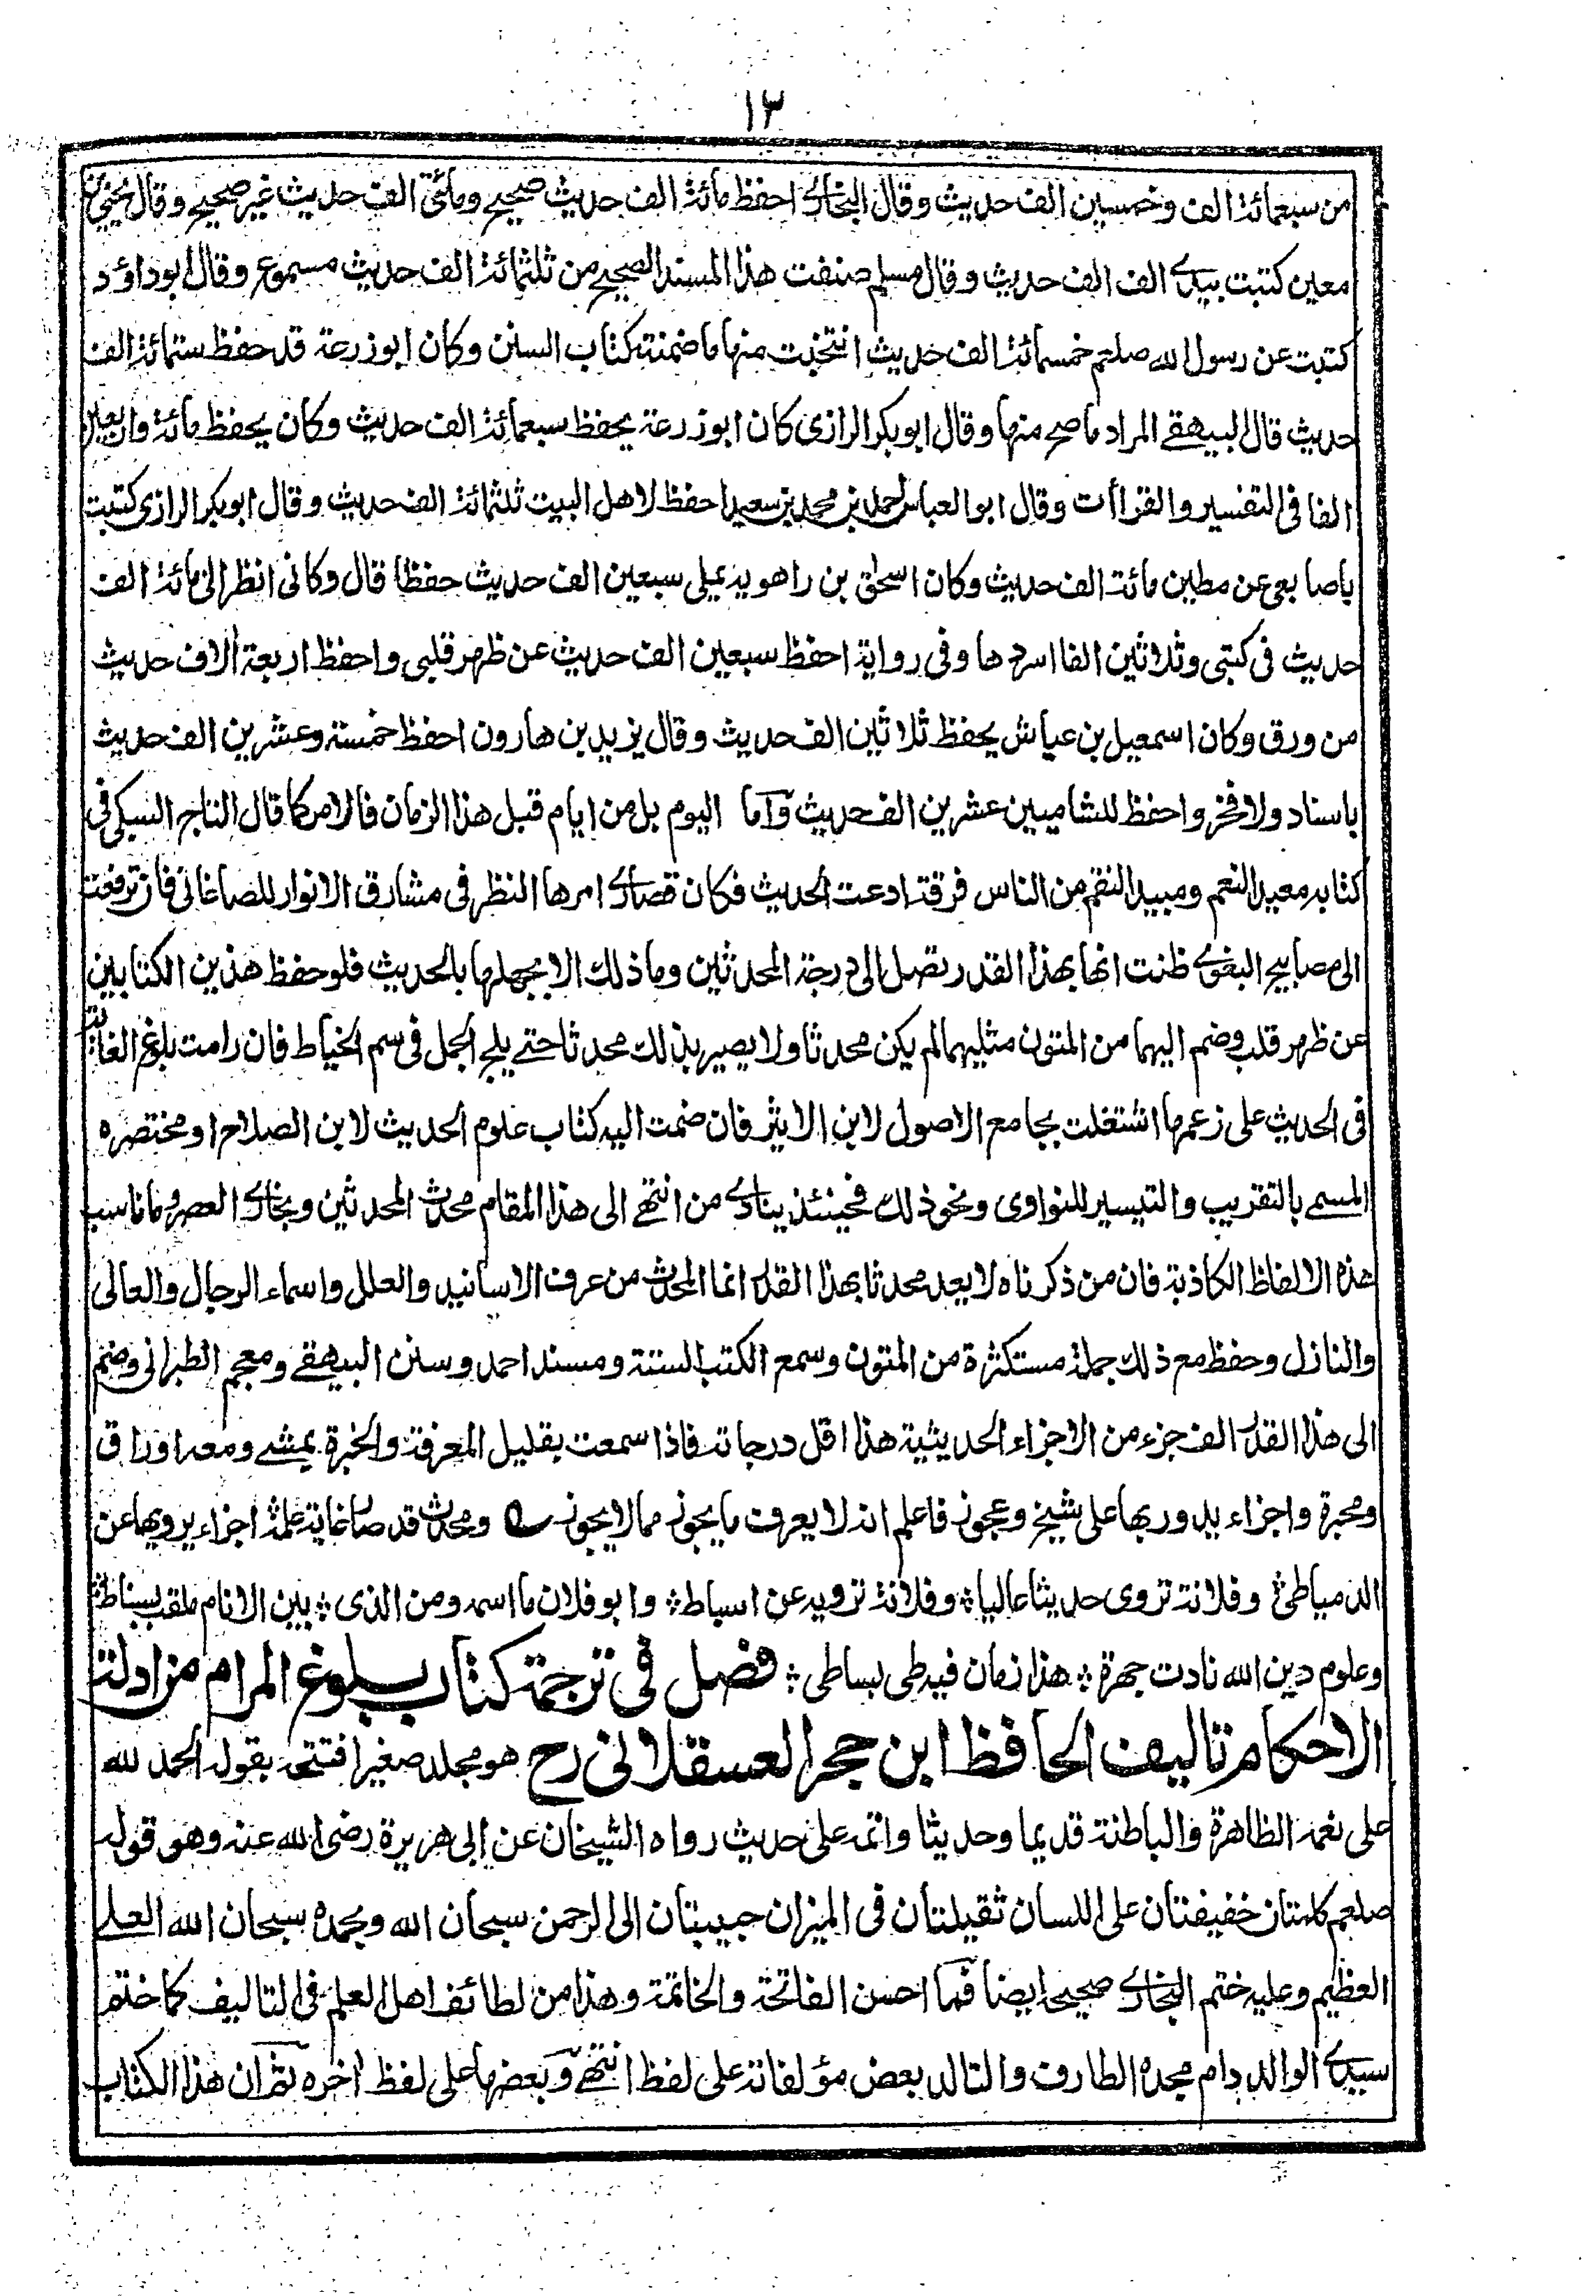 ١٣
من سبعمائة الف وخمسين الف حديث وقال البخارے احفظ مائة الف حديث صحيح ومائتى الف حديث غير صحيح وقال يحيى بن
معين كتبت بيدے الف الف حديث وقال مسلم صنفت هذا المسند الصحيح من ثلثمائة الف حديث مسموع وقال ابو داؤد
كتبت عن رسول الله صلعم خمسمائة الف حديث انتخبت منها ما ضمنته كتاب السنن وكان ابو زرعة قد حفظ ستمائة الف
حديث قال البيهقے المراد ما صح منها وقال ابو بكر الرازى كان ابو زرعة يحفظ سبعمائة الف حديث وكان يحفظ مائة واربعين
الفا فى التفسير والقراأت وقال ابو العباس احمد بن محمد بن سعيد احفظ لاهل البيت ثلثمائة الف حديث وقال ابو بكر الرازى كتبت
باصابعى عن مطين مائة الف حديث وكان اسحق بن راهويه يملى سبعين الف حديث حفظا قال وكانى انظر الى مائة الف
حديث فى كتبى وثلاثين الفا اسردها وفى رواية احفظ سبعين الف حديث عن ظهر قلبى واحفظ اربعة ألاف حديث
من ورق وكان اسمعيل بن عياش يحفظ ثلاثين الف حديث وقال يزيد بن هارون احفظ خمسة وعشرين الف حديث
باسناد ولا فخر واحفظ للشاميين عشرين الف حديث وآما اليوم بل من ايام قبل هذا الزمان فالامر كما قال التاج السبكى فى
كتابه معيد النعم ومبيد النقم من الناس فرقة ادعت الحديث فكان قصارے امرها النظر فى مشارق الانوار للصاغانى فان ترفعت
الى مصابيح البغوے ظنت انها بهذا القدر تصل الى درجة المحدثين وما ذلك الا بجهلها بالحديث فلو حفظ هذين الكتابين
عن ظهر قلب وضم اليهما من المتون مثليهما لم يكن محدثا ولا يصير بذلك محدثا حتے يلج الجمل فى سم الخياط فان رامت بلوغ الغاية
فى الحديث على زعمها اشتغلت بجامع الاصول لابن الاثير فان ضمت اليه كتاب علوم الحديث لابن الصلاح او مختصره
المسمے بالتقريب والتيسير للنواوى ونحو ذلك فحينئذ ينادے من انتهے الى هذا المقام محدث المحدثين وبخارے العصر وما ناسب
هذه الالفاظ الكاذبة فان من ذكرناه لا يعد محدثا بهذا القدر انما المحدث من عرف الاسانيد والعلل واسماء الرجال والعالى
والنازل وحفظ مع ذلك جملة مستكثرة من المتون وسمع الكتب الستة ومسند احمد وسنن البيهقے ومعجم الطبرانى وضم
الى هذا القدر الف جزء من الاجزاء الحديثية هذا اقل درجاته فاذا سمعت بقليل المعرفة والخبرة يمشے ومعه اوراق
ومحبرة واجزاء يدور بها على شيخ وعجوز فاعلم انه لا يعرف ما يجوز مما لا يجوز ومحدث قد صار غاية علمه اجزاء يرويها عن
الدمياطى ؞ وفلانة تروى حديثا عاليا ؞ وفلانة ترويه عن اسباط ؞ وابو فلان ما اسمه ومن الذى ؞ بين الانام ملقب بسناط ؞
وعلوم دين الله نادت جهرة ؞ هذا زمان فيه طى بساطى ؞ فصل فى ترجمة كتاب بلوغ المرام من ادلة
الاحكام تاليف الحافظ ابن حجر العسقلانى رح هو مجلد صغير افتتحه بقوله الحمد لله
على نعمه الظاهرة والباطنة قديما وحديثا واتمه على حديث رواه الشيخان عن ابى هريرة رضى الله عنه وهو قوله
صلعم كلمتان خفيفتان على اللسان ثقيلتان فى الميزان حبيبتان الى الرحمن سبحان الله وبحمده سبحان الله العلى
العظيم وعليه ختم البخارے صحيحه ايضا فما احسن الفاتحة والخاتمة وهذا من لطائف اهل العلم فى التاليف كما ختم
سيدے الوالد دام مجده الطارف والتالد بعض مؤلفاته على لفظ انتهے وبعضها على لفظ اخره ثم ان هذا الكتاب